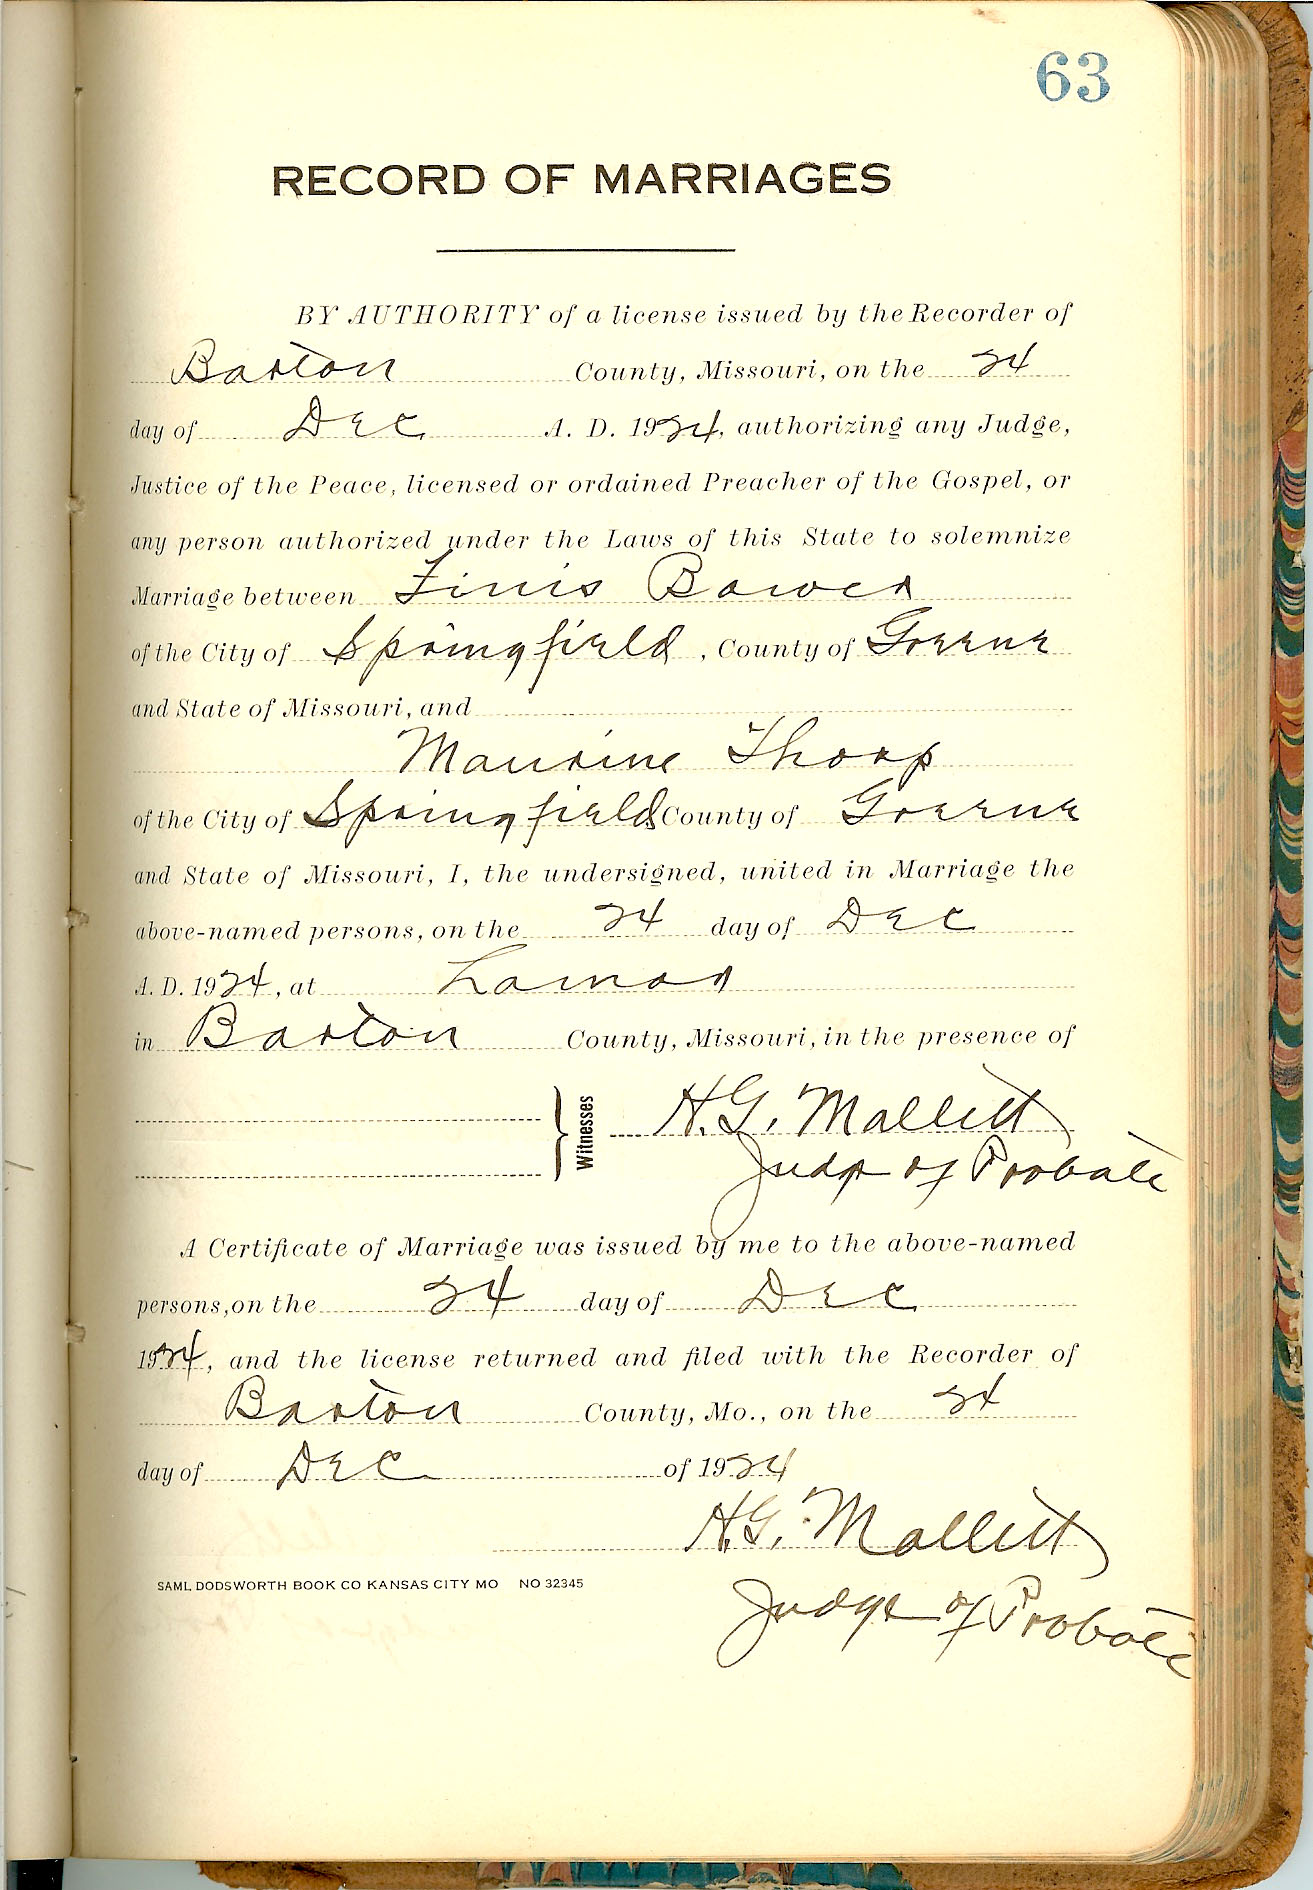 63
RECORD OF MARRIAGES
BY AUTHORITY of a license issued by the Recorder of
Barton County, Missouri, on the 24
day of Dec A. D. 1924, authorizing any Judge,
Justice of the Peace, licensed or ordained Preacher of the Gospel, or
any person authorized under the Laws of this State to solemnize
Marriage between Finis Bower
of the City of Springfield, County of Greene
and State of Missouri, and
Maurine Thorp
of the City of Springfield County of Greene
and State of Missouri, I, the undersigned, united in Marriage the
above-named persons, on the 24 day of Dec
A. D. 1924, at Lamar
in Barton County, Missouri, in the presence of
Witnesses H. G. Mallett
Judge of Probate
A Certificate of Marriage was issued by me to the above-named
persons, on the 24 day of Dec
1924, and the license returned and filed with the Recorder of
Barton County, Mo., on the 24
day of Dec of 1924
H. G. Mallett
SAML DODSWORTH BOOK CO KANSAS CITY MO NO 32345
Judge of Probate